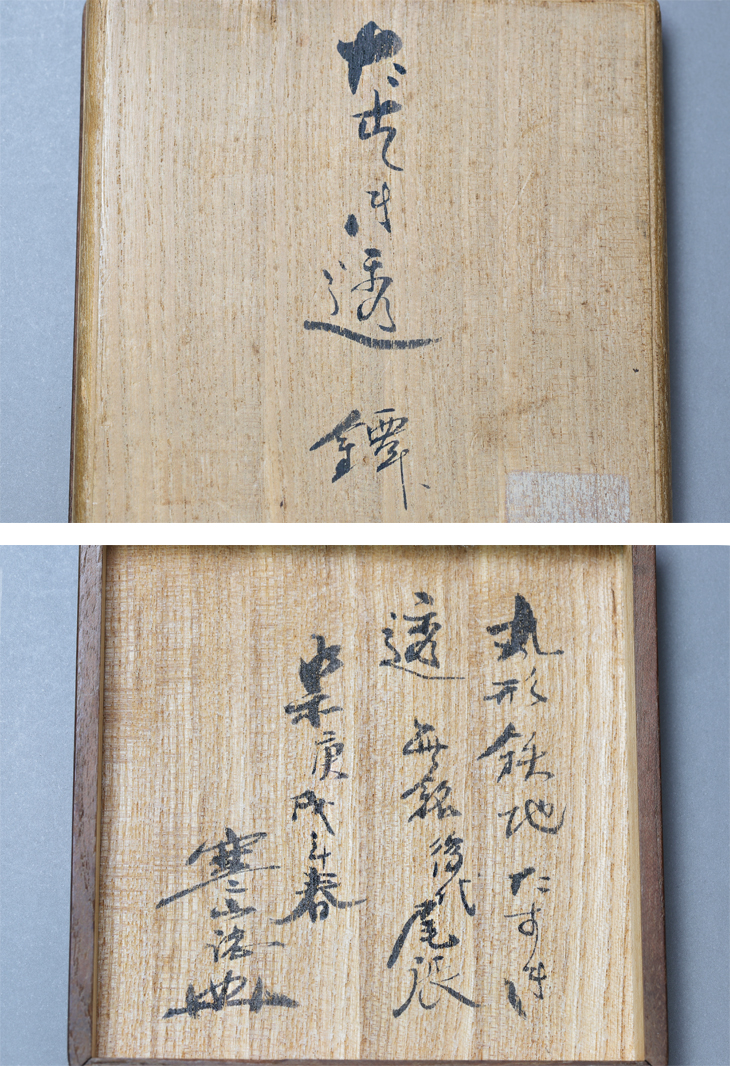 たすき透 鐔
丸形鉄地 たすき
透 無銘 後代尾張
庚戌春
寒山誌